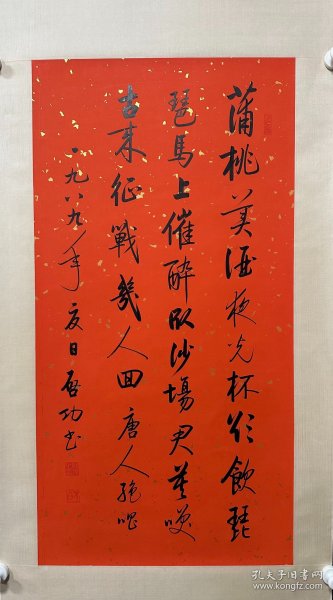 蒲桃美酒夜光杯欲飲琵
琶馬上催醉臥沙場君莫咲
古来征戰幾人回唐人絕唱
一九八九年夏日啓功書
孔夫子旧书网
www.kongfz.com